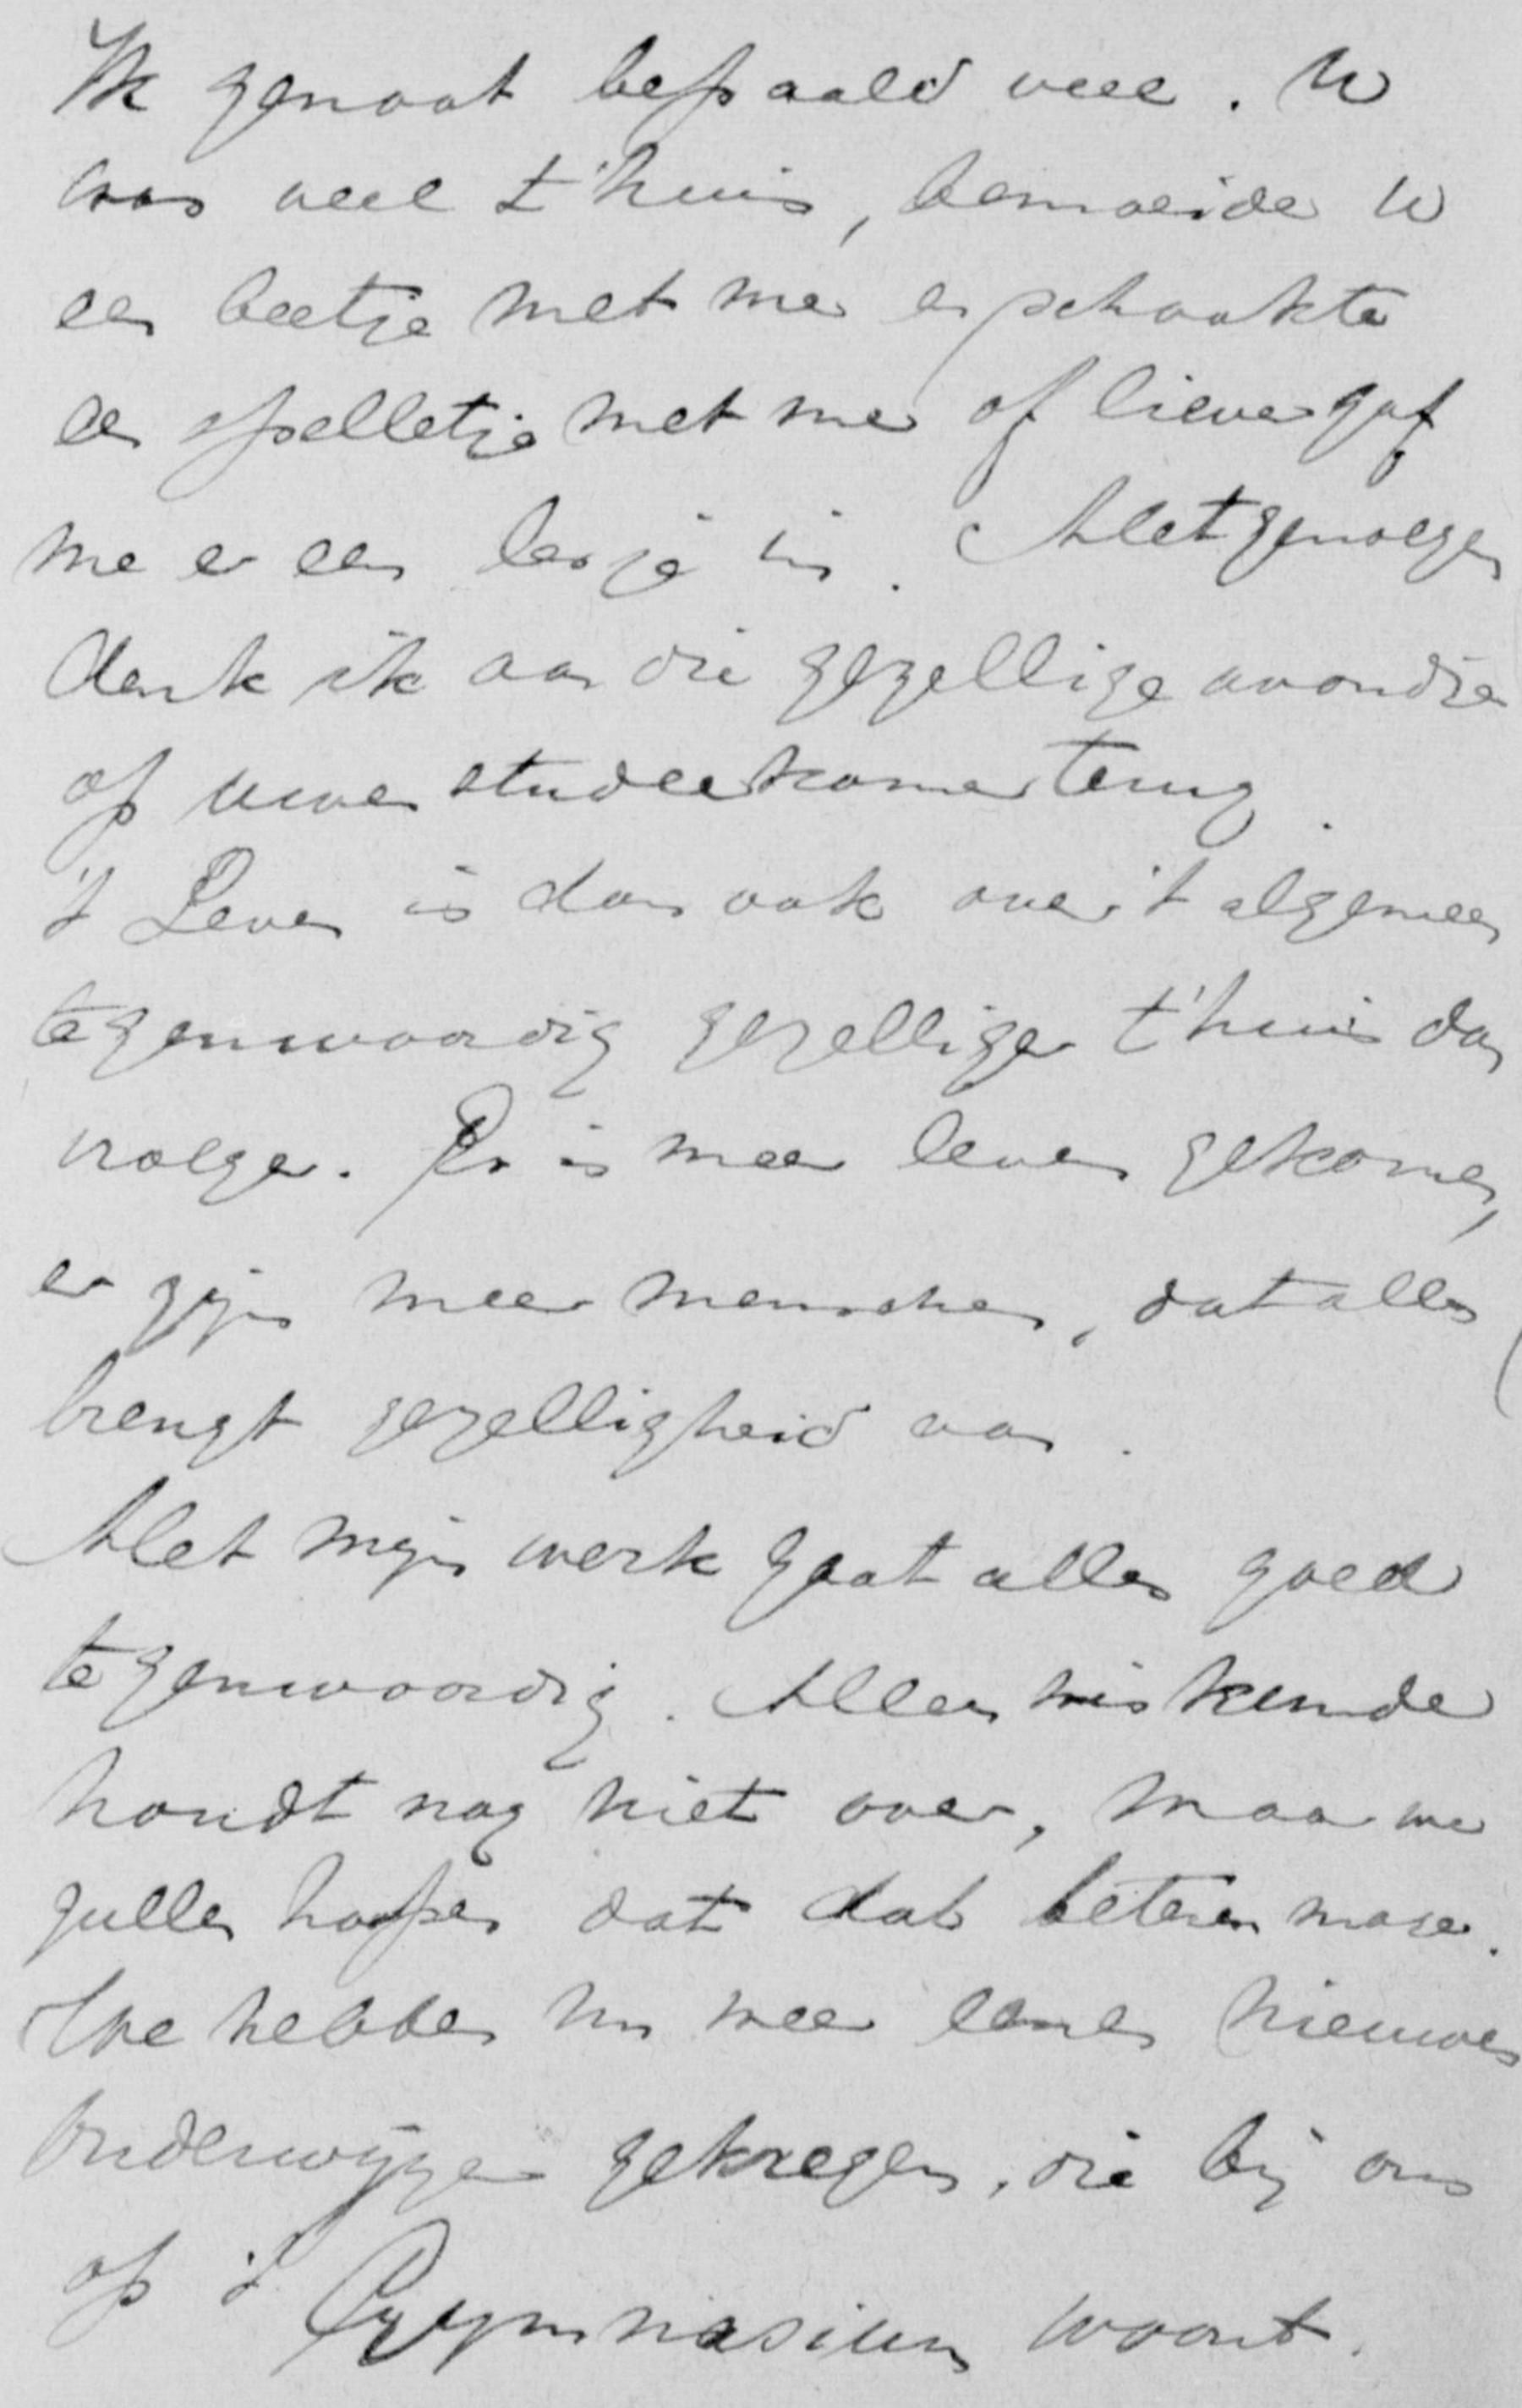 Ik genoot bepaald veel. U
was veel t'huis, bemoeide U
een beetje met me en schaakte
een spelletje met me of liever gaf
me er een lesje in. Met genoegen
denk ik aan die gezellige avondjes
op uwe studeerkamer terug.
't Leven is dan ook over 't algemeen
tegenwoordig gezelliger t'huis dan
vroeger. Er is meer leven gekomen,
er zijn meer menschen, dat alles
brengt gezelligheid aan.
Met mijn werk gaat alles goed
tegenwoordig. Alleen wiskunde
houdt nog niet over, maar we
zullen hopen dat dat beteren moge.
We hebben nu weer eenen nieuwen
onderwijzer gekregen, die bij ons
op 't Gymnasium woont.